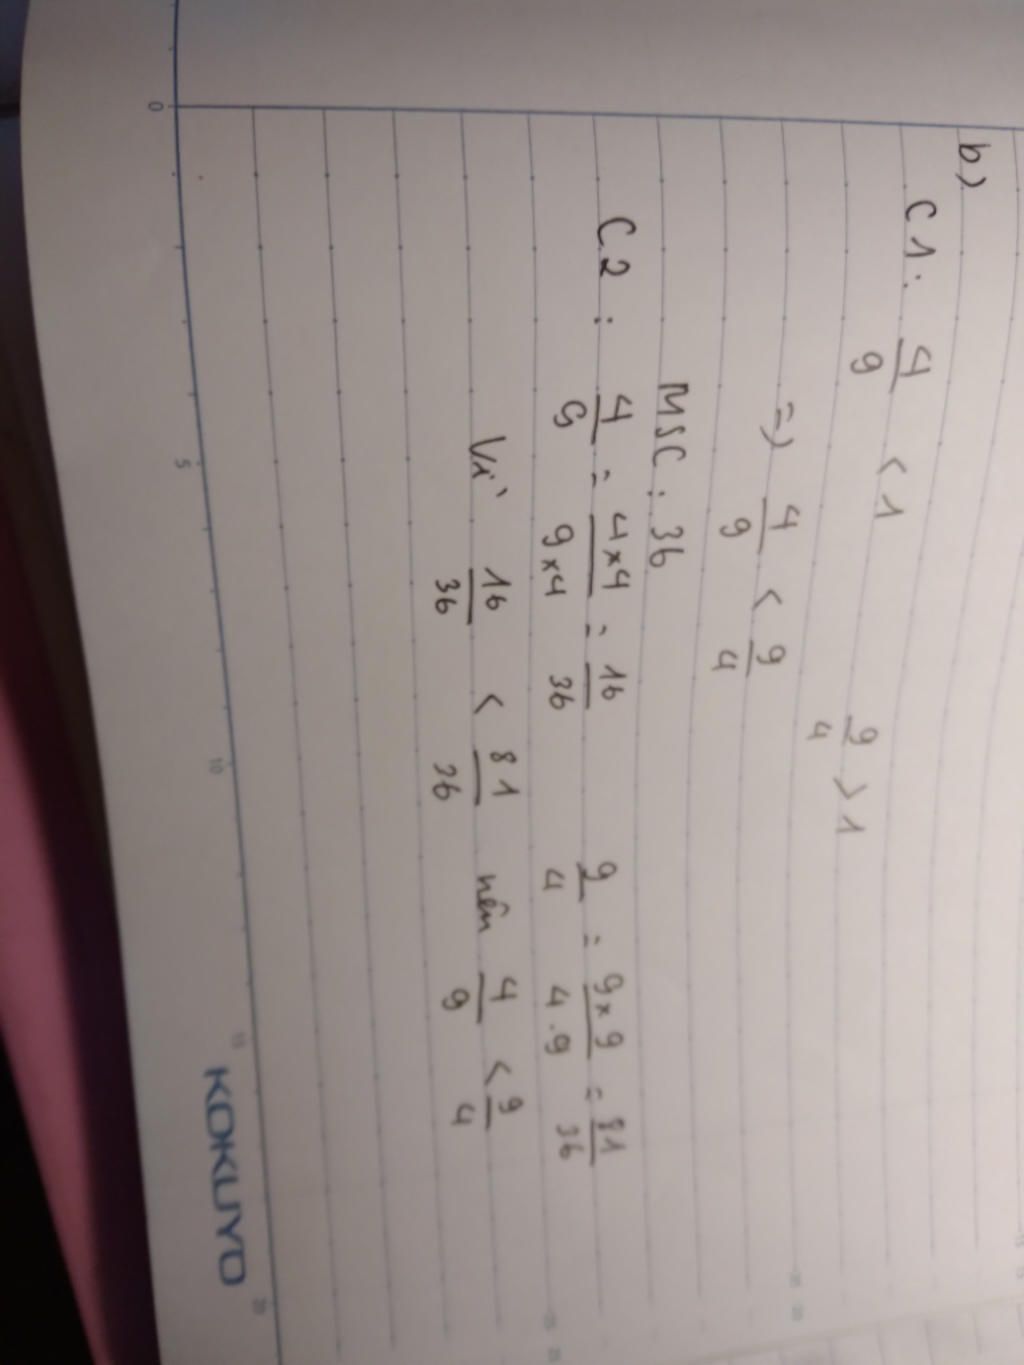 b)
C1: 4/9 < 1 9/4 > 1
=) 4/9 < 9/4
MSC: 36
C2: 4/9 = 4×4/9×4 = 16/36 9/4 = 9×9/4.9 = 81/36
Vì 16/36 < 81/36 nên 4/9 < 9/4
0 5 10 15 20
KOKUYO